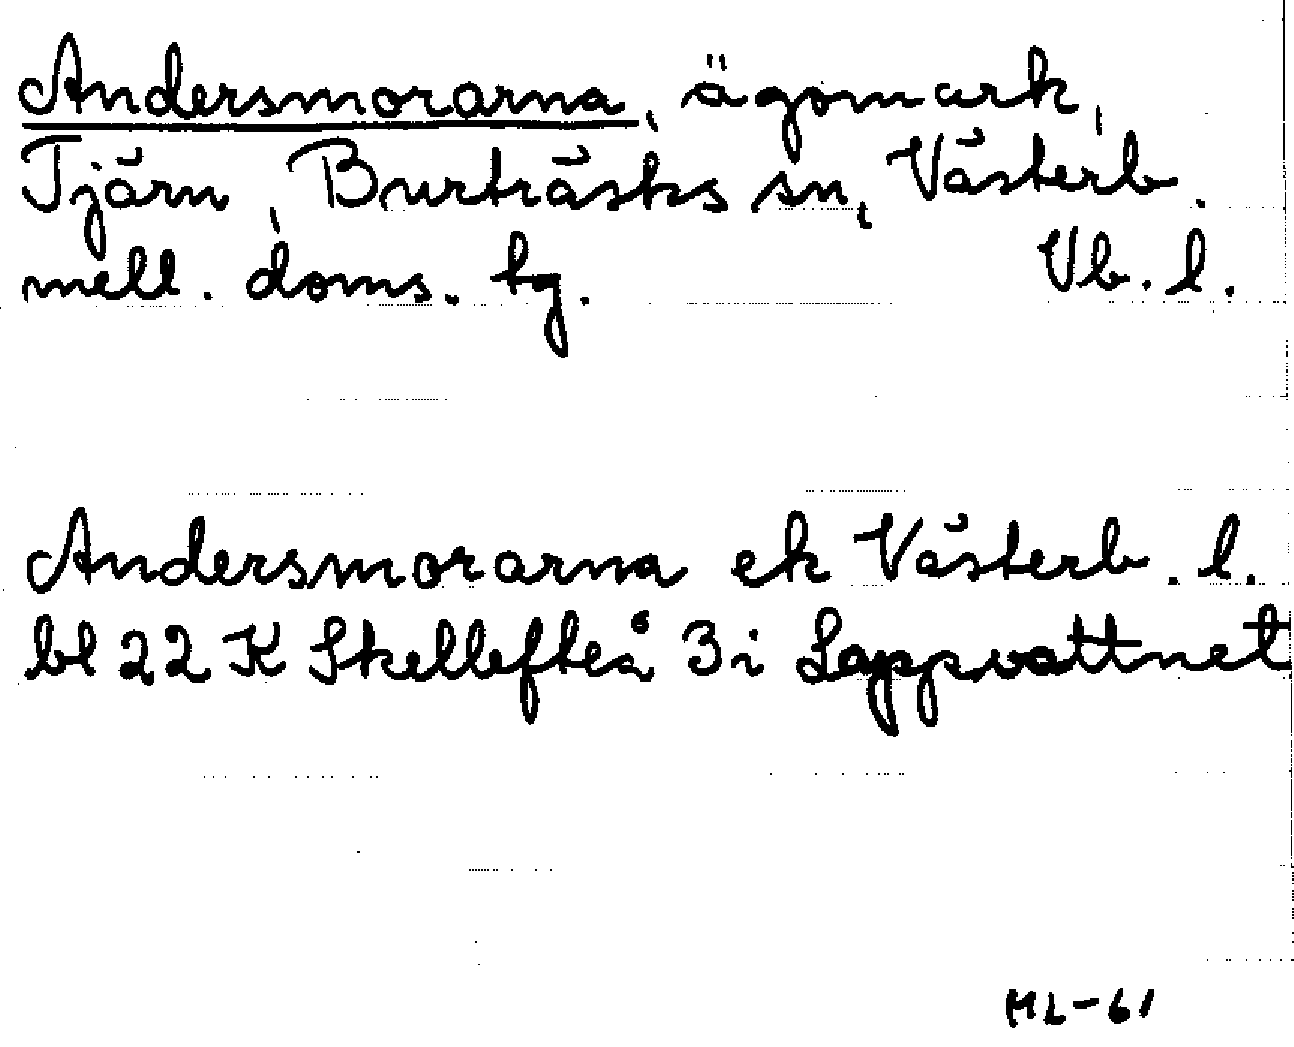 Andersmorarna, ägomark,
Tjärn, Burträsks sn, Västerb.
mell. doms. tg. Vb. l.
Andersmorarna ek Västerb. l.
bl 22 K Skellefteå 3i Lappvattnet
ML-61